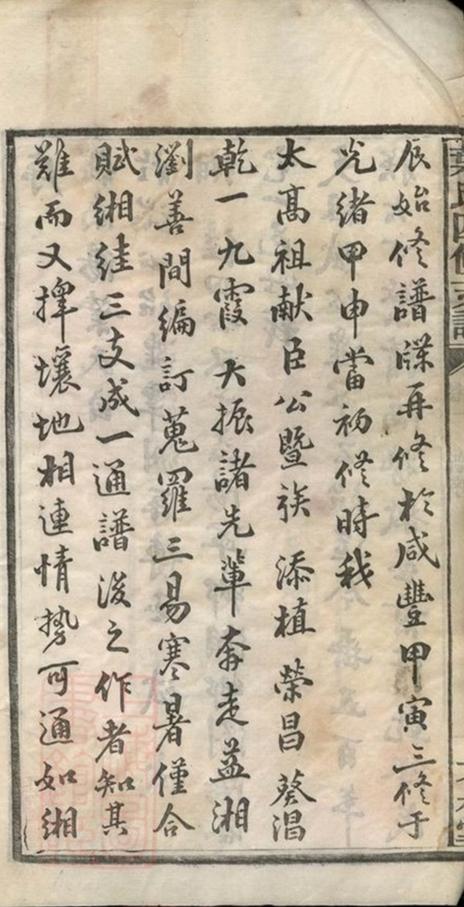 辰始修譜牒再修於咸豐甲寅三修于
光緒甲申當初修時我
太高祖献臣公暨族添植榮昌葵淐
乾一九霞大振諸先輩奔走益湘
瀏善間編訂蒐羅三易寒暑僅合
賦緗絓三支成一通譜後之作者知其
難而又揮壤地相連情勢可通如緗